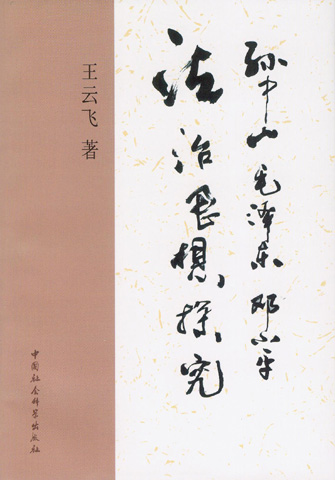 孙中山 毛泽东 邓小平
法治思想探究
王云飞 著
中国社会科学出版社